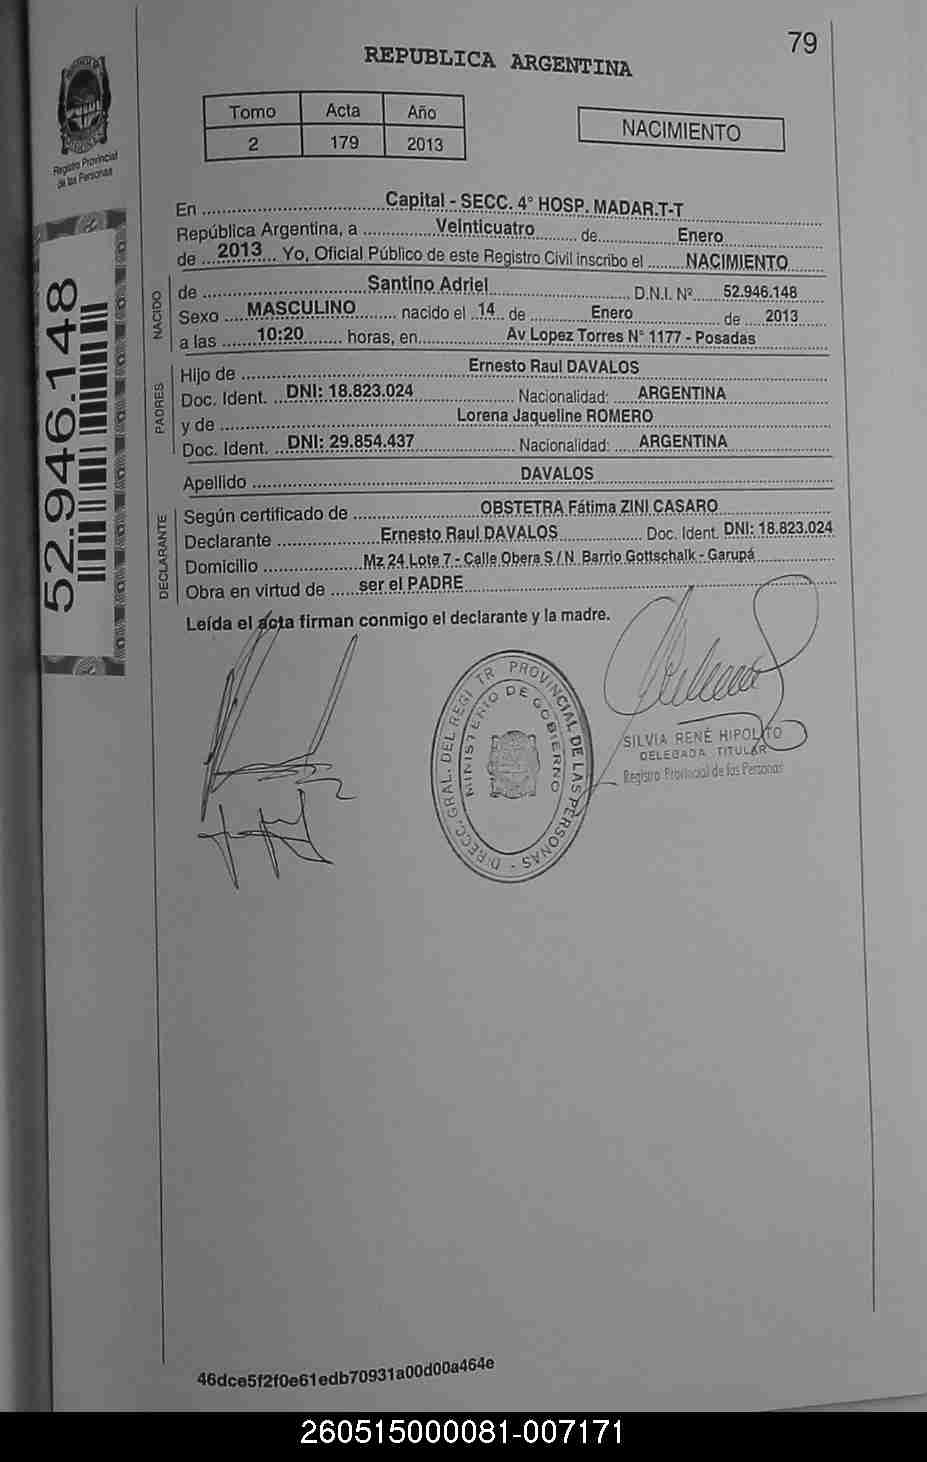 79
REPUBLICA ARGENTINA
Tomo Acta Año
2 179 2013
NACIMIENTO
Registro Provincial
de las Personas
52.946.148
En Capital - SECC. 4° HOSP. MADAR.T-T
República Argentina, a Veinticuatro de Enero
de 2013 Yo, Oficial Público de este Registro Civil inscribo el NACIMIENTO
NACIDO
de Santino Adriel D.N.I. Nº 52.946.148
Sexo MASCULINO nacido el 14 de Enero de 2013
a las 10:20 horas, en Av Lopez Torres N° 1177 - Posadas
PADRES
Hijo de Ernesto Raul DAVALOS
Doc. Ident. DNI: 18.823.024 Nacionalidad: ARGENTINA
y de Lorena Jaqueline ROMERO
Doc. Ident. DNI: 29.854.437 Nacionalidad: ARGENTINA
Apellido DAVALOS
DECLARANTE
Según certificado de OBSTETRA Fátima ZINI CASARO
Declarante Ernesto Raul DAVALOS Doc. Ident. DNI: 18.823.024
Domicilio Mz 24 Lote 7 - Calle Obera S / N Barrio Gottschalk - Garupá
Obra en virtud de ser el PADRE
Leída el acta firman conmigo el declarante y la madre.
DIRECC. GRAL. DEL REGI TR PROVINCIAL DE LAS PERSONAS -
MINISTERIO DE GOBIERNO
SILVIA RENÉ HIPOLITO
DELEGADA TITULAR
Registro Provincial de las Personas
46dce5f2f0e61edb70931a00d00a464e
260515000081-007171